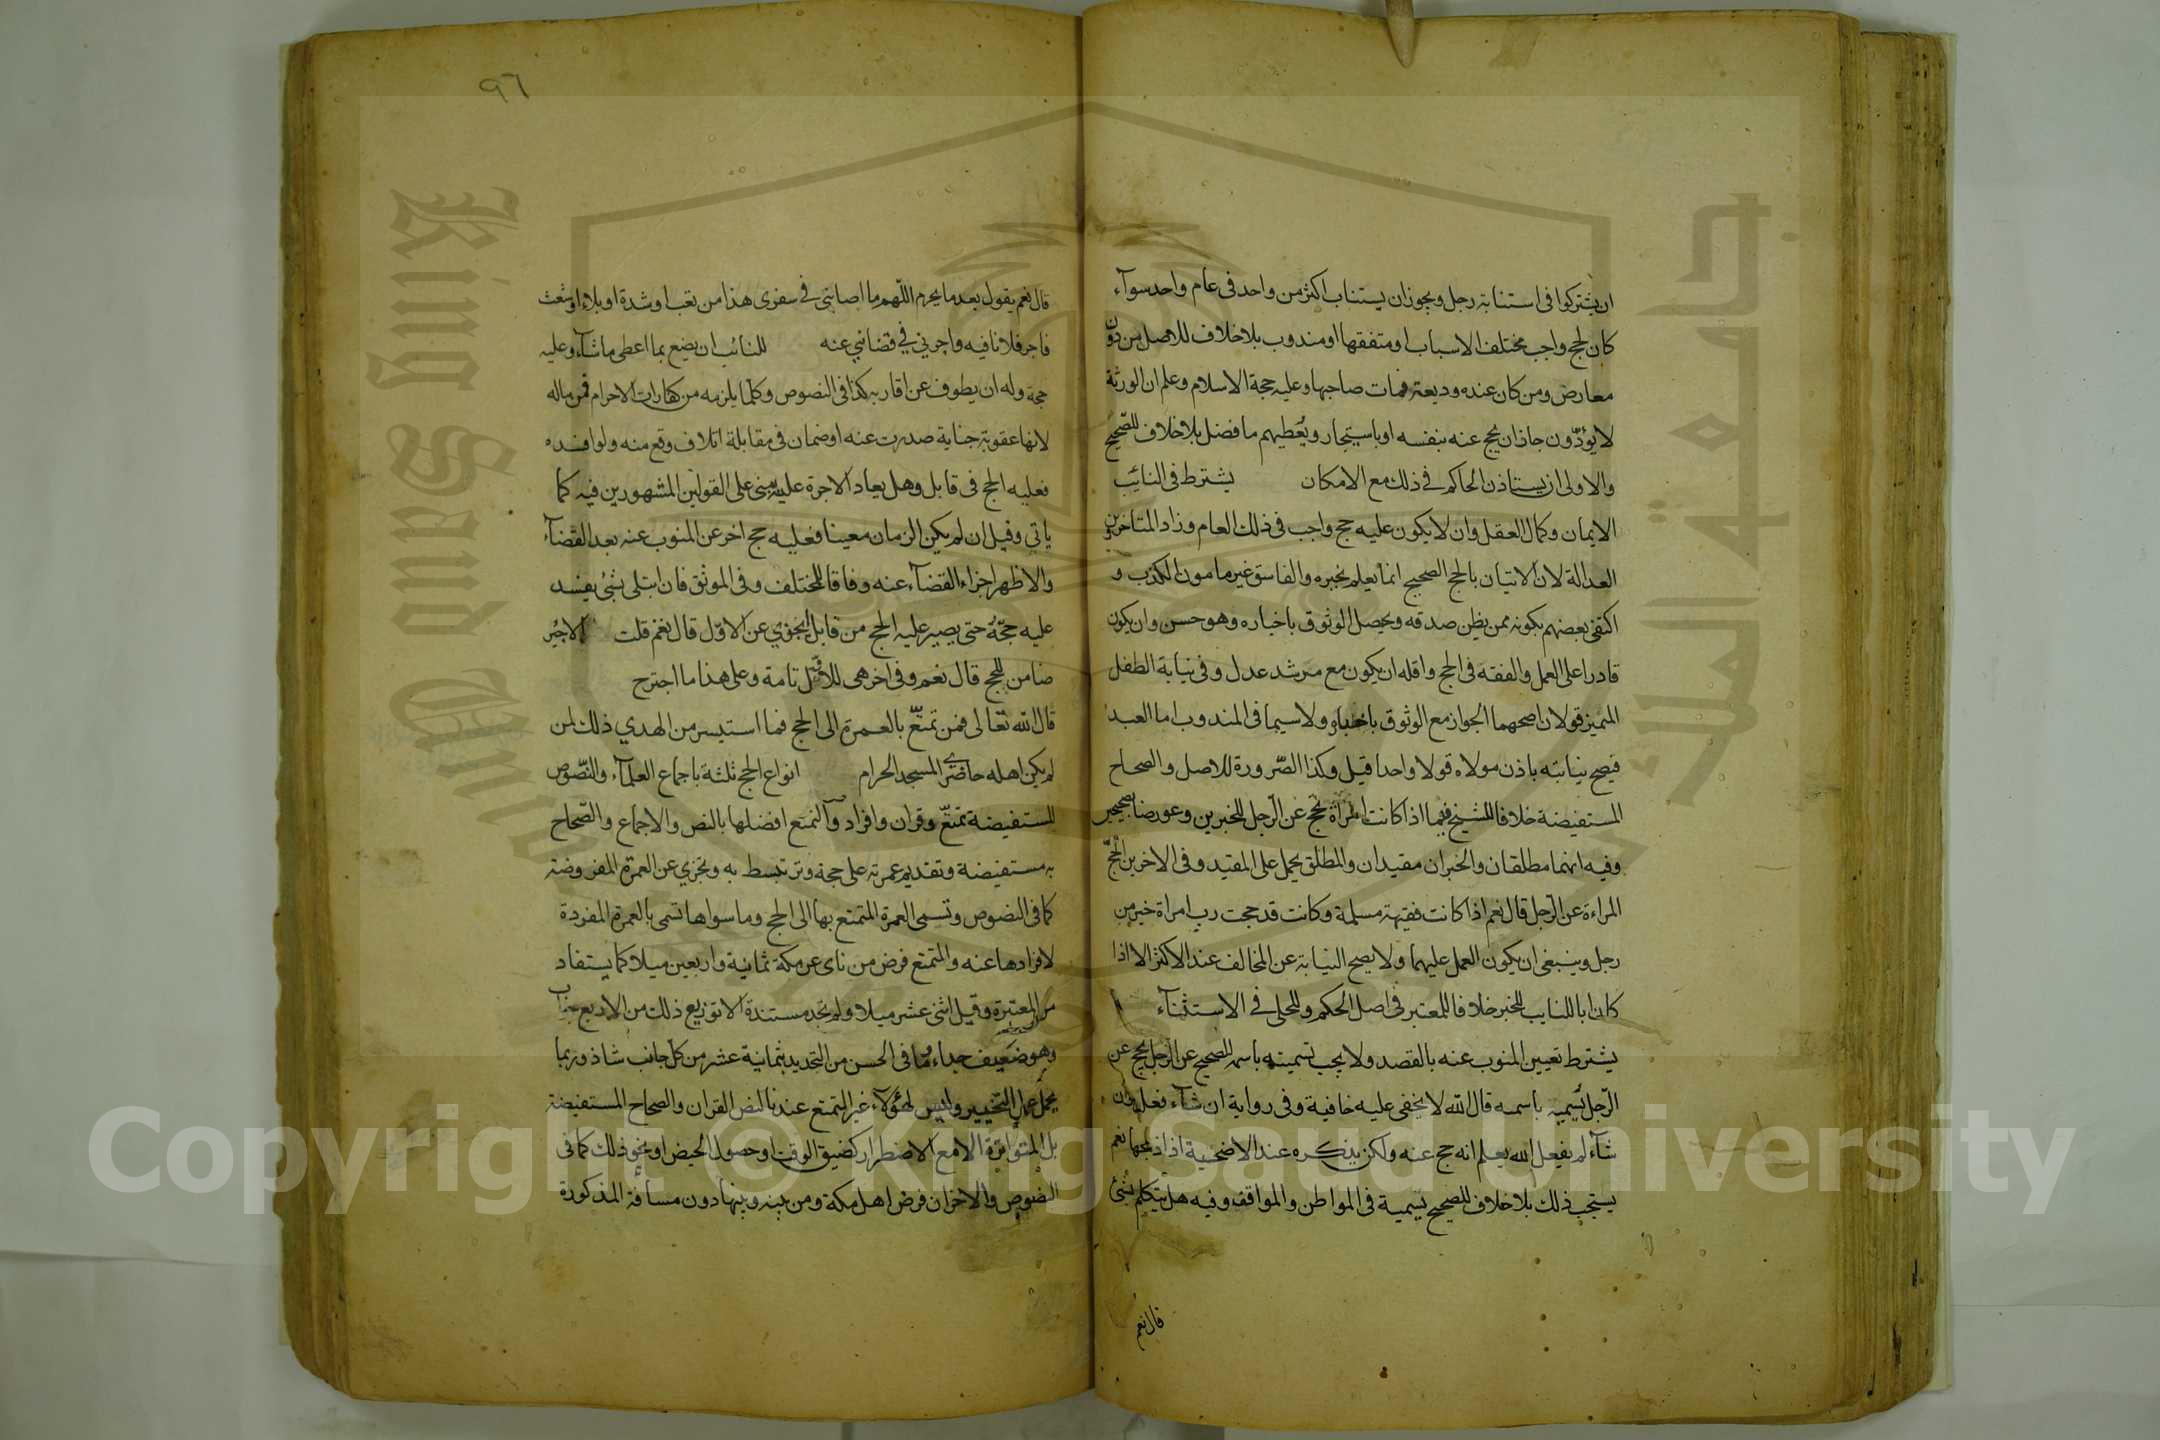 ان يشتركوا فى استنابة رجل ويجوز ان يستناب اكثر من واحد فى عام واحد سوآء
كان الحج واجب مختلف الاسباب او متفقها او مندوب بلا خلاف للاصل من دون
معارض ومن كان عنده وديعة فمات صاحبها وعليه حجة الاسلام وعلم ان الورثة
لا يؤدّون جاز ان يحج عنه بنفسه او باستيجار ويُعطيهم ما فضل بلا خلاف للصّحيح
والاولى ان يستاذن الحاكم فى ذلك مع الامكان يشترط فى النائب
الايمان وكمال العقل وان لا يكون عليه حج واجب فى ذلك العام وزاد المتاخرين
العدالة لان الاتيان بالحج الصحيح انما يعلم بخبره والفاسق غير مامون الكذب و
اكتفى بعضهم بكونه ممن يظن صدقه ويحصل الوثوق باخباره وهو حسن وان يكون
قادرا على العمل والفقه فى الحج واقله ان يكون مع مرشد عدل وفى نيابة الطفل
المميز قولان اصحهما الجواز مع الوثوق باخباره ولاسيما فى المندوب اما العبد
فيصح نيابته باذن مولاه قولا واحدا قيل وكذا الصّرورة للاصل والصحاح
المستفيضة خلافا للشيخ فيما اذا كانت امراة تحج عن الرّجل للخبرين وعورضا بصحيحين
وفيه انهما مطلقان والخبران مقيدان والمطلق يحمل على المقيد وفى الاخرين الحجّ
المراءة عن الرّجل قال نعم اذا كانت فقيهة مسلمة وكانت قد حجت رب امراة خير من
رجل وينبغى ان يكون العمل عليهما ولا يصح النيابة عن المخالف عند الاكثر الا اذا
كان ابا للنايب للخبر خلافا للمعتبر فى اصل الحكم وللحلى فى الاستثنآء
يشترط تعيين المنوب عنه بالقصد ولا يجب تسميته باسمه للصحيح عن الرّجل يحج عن
الرّجل يُسميه باسمه قال اللّه لا يخفى عليه خافية وفى رواية ان شآء فعل وان
شآء لم يفعل اللّه يعلم انه حج عنه ولكن يذكره عند الاضحية اذا ذبحها نعم
يستحب ذلك بلا خلاف للصحيح يسميه فى المواطن والمواقف وفيه هل يتكلم بشئ
قال نعم
٩٦
قال نعم يقول بعد ما يحرم اللّهم ما اصابنى فى سفرى هذا من تعب او شدة او بلاء او شعث
فاجر فلانا فيه واجرنى فى قضائى عنه للنائب ان يضع بما اعطى ما شآء وعليه
حجة وله ان يطوف عن اقاربه كذا فى النصوص وكلما يلزمه من كفارات الاحرام فمن ماله
لانها عقوبة جناية صدرت عنه او ضمان فى مقابلة اتلاف وقع منه ولو افسده
فعليه الحج فى قابل وهل يعاد الاجرة عليه يبنى على القولين المشهورين فيه كما
ياتى وقيل ان لم يكن الزمان معينا فعليه حج اخر عن المنوب عنه بعد القضآء
والاظهر اجزاء القضآء عنه وفاقا للمختلف وفى الموثق فان ابتلى بشئ يفسد
عليه حجّةُ حتى يصير عليه الحج من قابل ايجزى عن الاوّل قال نعم قلت الاجير
ضامن للحج قال نعم وفى اخر هى للاوّل تامة وعلى هذا ما اجترح
قال اللّه تعالى فمن تمتّع بالعمرة الى الحج فما استيسر من الهدي ذلك لمن
لم يكن اهله حاضرى المسجد الحرام انواع الحج ثلثة باجماع العلمآء والنّصوص
المستفيضة تمتّع وقران وافراد والتمتع افضلها بالنص والاجماع والصّحاح
به مستفيضة وتقديم عمرته على حجة وترتبط به ويجزي عن العمرة المفروضة
كما فى النصوص وتسمى العمرة المتمتع بها الى الحج وما سواها تسمى بالعمرة المفردة
لافرادها عنه والتمتع فرض من ناى عن مكة ثمانية واربعين ميلا كما يستفاد
من المعتبرة وقيل اثنى عشر ميلا ولم نجد مستنده الا توزيع ذلك من الاربع جوانب
وهو ضعيف جدا وما فى الحسن من التحديد بثمانية عشر من كل جانب شاذ وربما
يحمل على التخيير وليس لهؤلآء غير التمتع عندنا لنص القران والصحاح المستفيضة
بل المتواترة الا مع الاضطرار كضيق الوقت او حصول الحيض او نحو ذلك كما فى
النصوص والاخران فرض اهل مكة ومن بينه وبينها دون مسافة المذكورة
King Saud University
جامعة الملك
Copyright © King Saud University